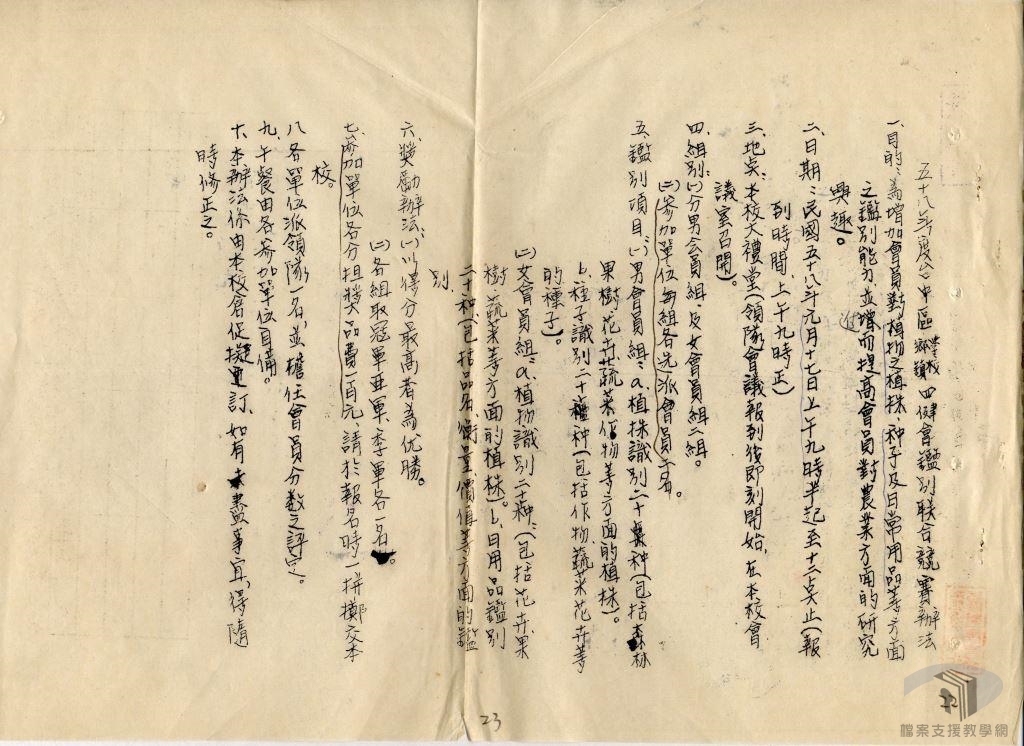 五十八年度台中區農校鄉鎮四健會鑑別联合競賽辦法
一、目的:為增加會員對植物之植株、种子及日常用品等方面
之鑑別能力並增而提高會員對農業方面的研究
興趣。
二、日期:民國五十八年元月十七日上午九時半起至十二点止(報
到時間:上午九時正)
三、地点:本校大禮堂(領隊會議報到後即刻開始,在本校會
議室召開)。
四、組別:(一)分男会員組、及女會員組二組。
(二)參加單位每組各选派會員二名。
五、鑑別項目:(一)男會員組:a、植株識別二十种(包括森林
果樹花卉蔬菜作物等方面的植株)。
b、種子識別二十种(包括作物蔬菜花卉等
的種子)。
(二)女會員組:a、植物識別二十种:(包括花卉果
樹蔬菜等方面的植株)。b、日用品鑑別
二十种(包括品名衡量價值等方面的鑑
別。
六、獎勵辦法:(一)以得分最高者為优勝。
(二)各組取冠軍亞軍、季軍各一名。
七、參加單位各分担獎品費一百元,請於報名時一拼擲交本
校。
八、各單位派領隊一名,並擔任會員分数之評定。
九、午餐由各參加單位自備。
十、本辦法係由本校倉促擬訂、如有未盡事宜,得隨
時修正之。
23
22
檔案支援教學網